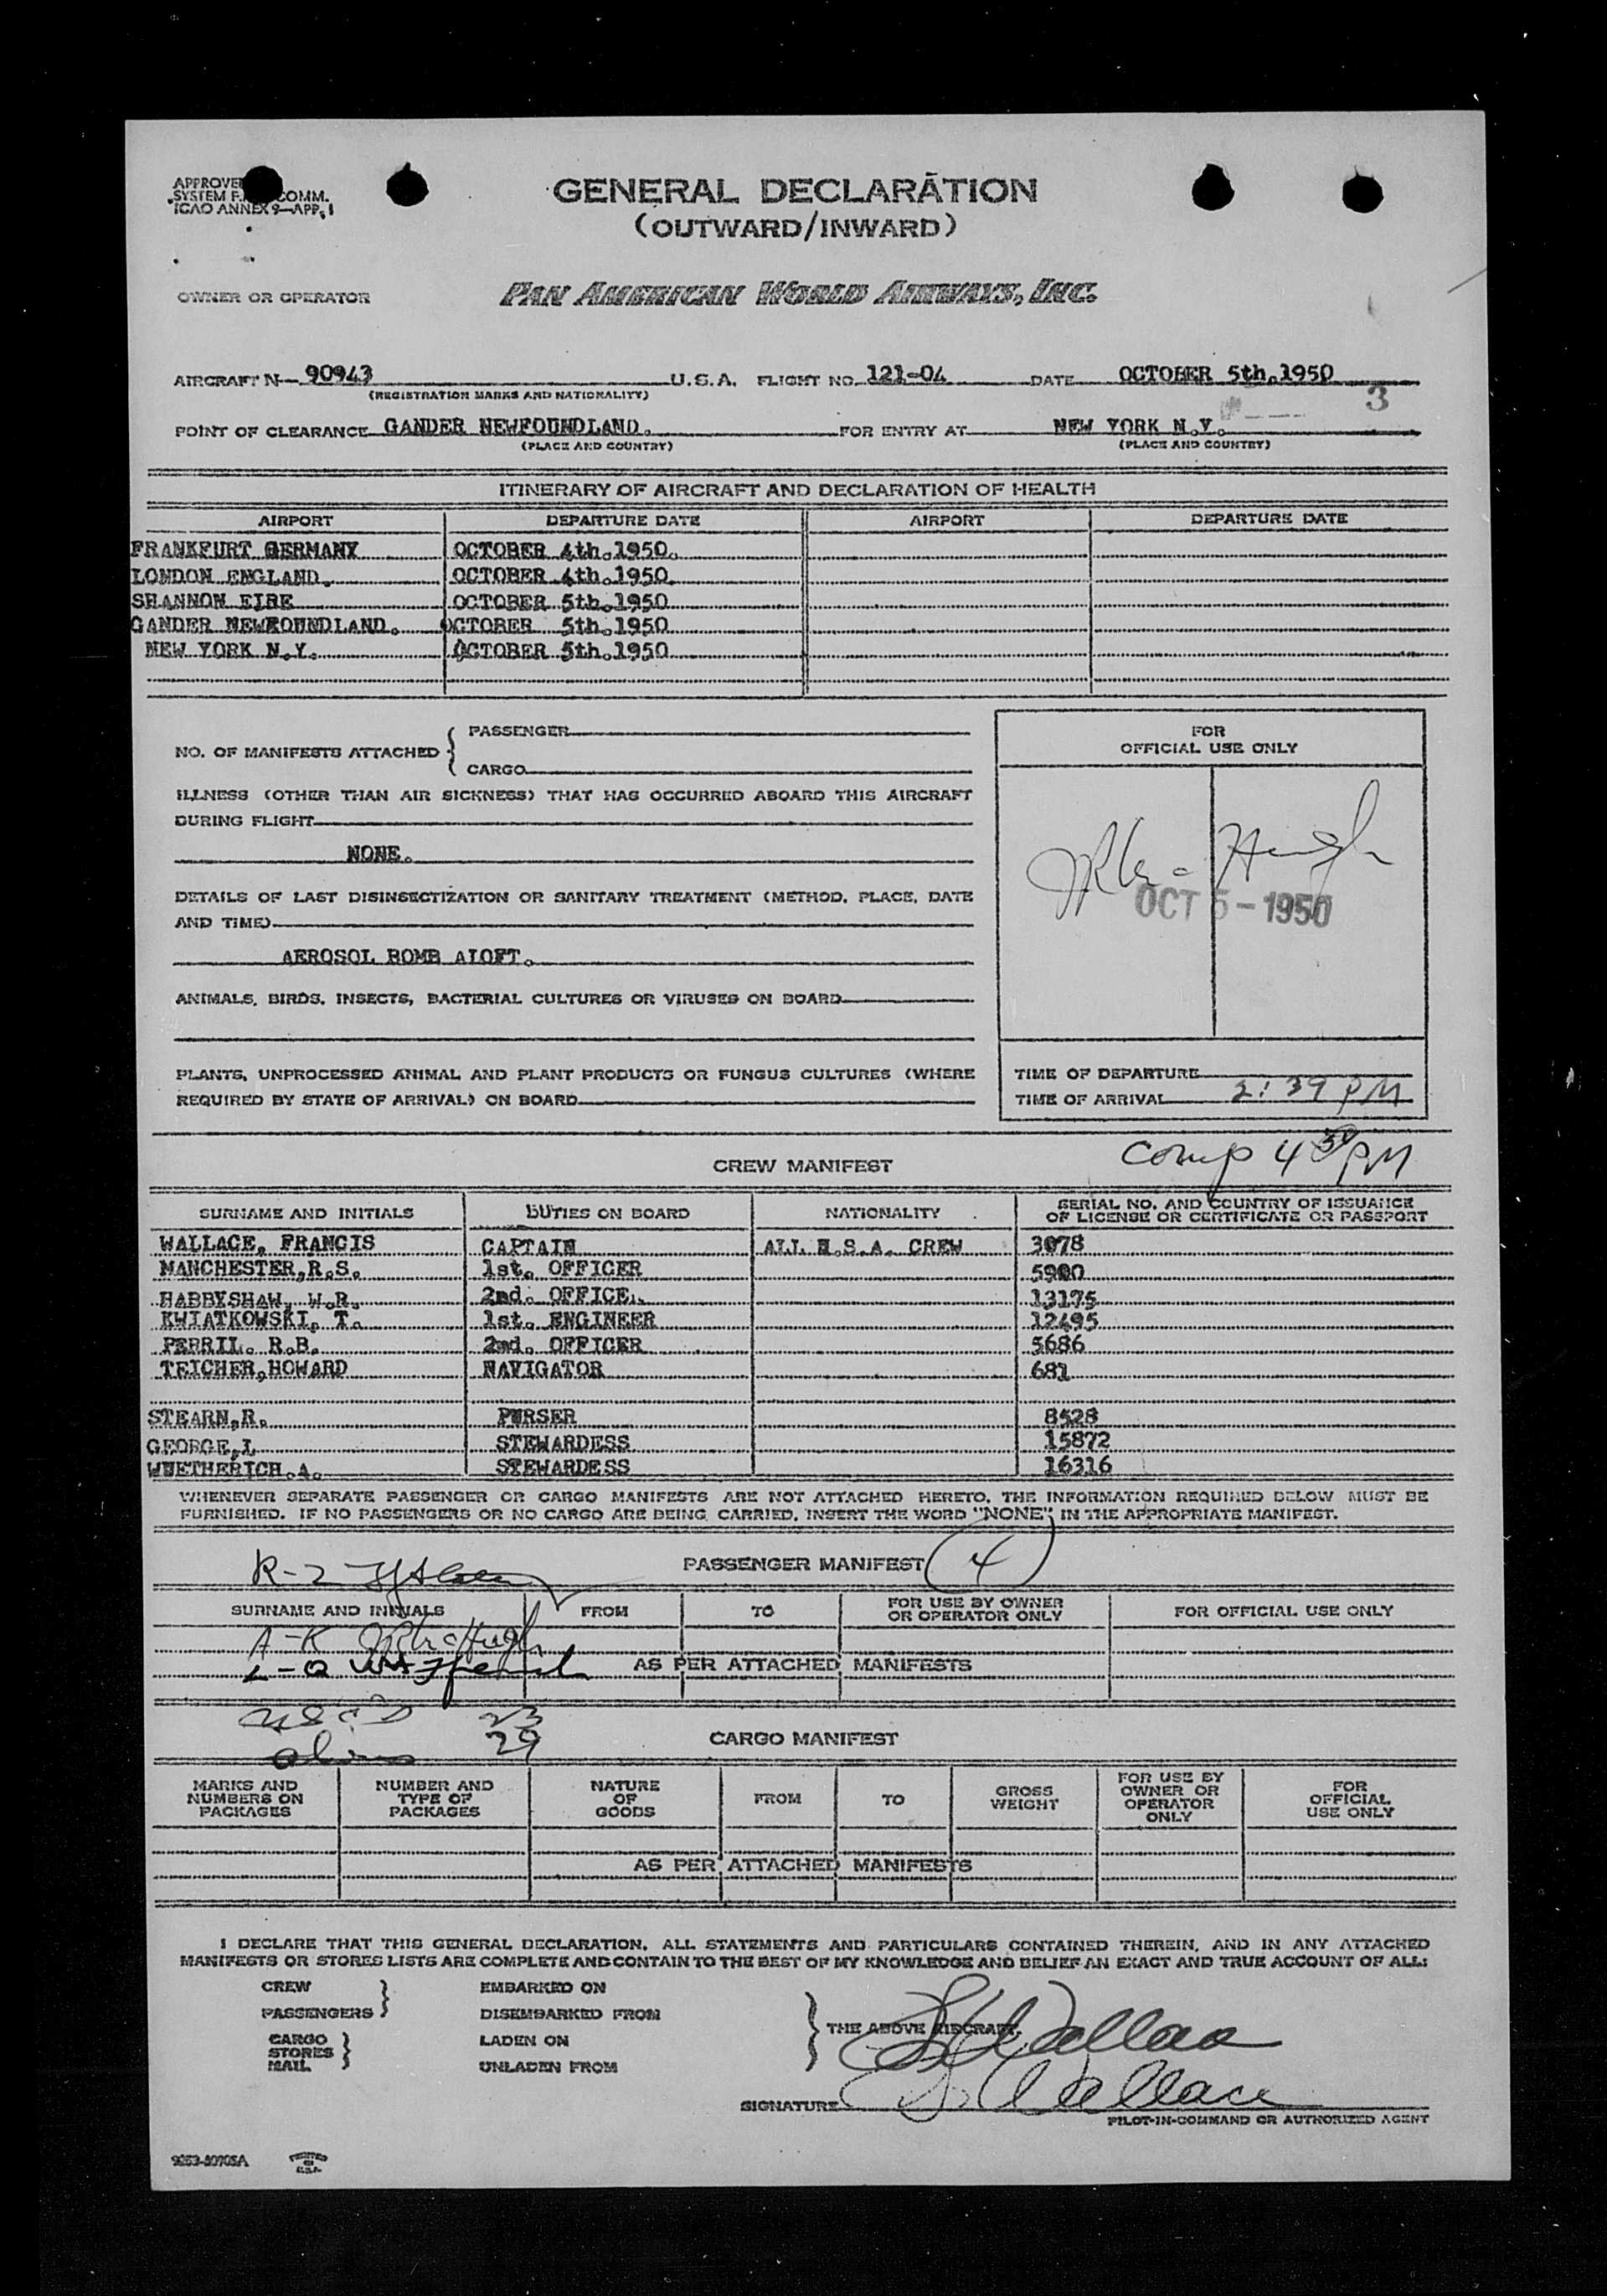 APPROVED
SYSTEM F. COMM.
ICAO ANNEX 9—APP. 1
GENERAL DECLARATION
(OUTWARD/INWARD)
OWNER OR OPERATOR PAN AMERICAN WORLD AIRWAYS, INC.
AIRCRAFT N— 90943 U.S.A. FLIGHT NO. 121-04 DATE OCTOBER 5th.1950
(REGISTRATION MARKS AND NATIONALITY)
3
POINT OF CLEARANCE GANDER NEWFOUNDLAND. FOR ENTRY AT NEW YORK N.Y.
(PLACE AND COUNTRY) (PLACE AND COUNTRY)
ITINERARY OF AIRCRAFT AND DECLARATION OF HEALTH
AIRPORT DEPARTURE DATE AIRPORT DEPARTURE DATE
FRANKFURT GERMANY OCTOBER 4th.1950.
LONDON ENGLAND. OCTOBER 4th.1950.
SHANNON EIRE OCTOBER 5th.1950
GANDER NEWFOUNDLAND. OCTOBER 5th.1950
NEW YORK N.Y. OCTOBER 5th.1950
NO. OF MANIFESTS ATTACHED { PASSENGER
CARGO
ILLNESS (OTHER THAN AIR SICKNESS) THAT HAS OCCURRED ABOARD THIS AIRCRAFT
DURING FLIGHT
NONE.
DETAILS OF LAST DISINSECTIZATION OR SANITARY TREATMENT (METHOD, PLACE, DATE
AND TIME)
AEROSOL BOMB ALOFT.
ANIMALS, BIRDS, INSECTS, BACTERIAL CULTURES OR VIRUSES ON BOARD
PLANTS, UNPROCESSED ANIMAL AND PLANT PRODUCTS OR FUNGUS CULTURES (WHERE
REQUIRED BY STATE OF ARRIVAL) ON BOARD
FOR
OFFICIAL USE ONLY
OCT 5-1950
TIME OF DEPARTURE
TIME OF ARRIVAL 2:39 PM
Comp 4 50 PM
CREW MANIFEST
SURNAME AND INITIALS DUTIES ON BOARD NATIONALITY SERIAL NO. AND COUNTRY OF ISSUANCE
OF LICENSE OR CERTIFICATE OR PASSPORT
WALLACE, FRANCIS CAPTAIN ALL U.S.A. CREW 3078
MANCHESTER,R.S. 1st. OFFICER 5900
HABBYSHAW, W.R. 2nd. OFFICE. 13175
KWIATKOWSKI, T. 1st. ENGINEER 12495
PERRIL. R.B. 2nd. OFFICER 5686
TEICHER,HOWARD NAVIGATOR 681
STEARN,R. PURSER 8528
GEORGE,I STEWARDESS 15872
WUETHERICH.A. STEWARDESS 16316
WHENEVER SEPARATE PASSENGER OR CARGO MANIFESTS ARE NOT ATTACHED HERETO, THE INFORMATION REQUIRED BELOW MUST BE
FURNISHED. IF NO PASSENGERS OR NO CARGO ARE BEING CARRIED, INSERT THE WORD "NONE" IN THE APPROPRIATE MANIFEST.
R-Z
PASSENGER MANIFEST (4)
SURNAME AND INITIALS FROM TO FOR USE BY OWNER
OR OPERATOR ONLY FOR OFFICIAL USE ONLY
A-K
L-Q AS PER ATTACHED MANIFESTS
23
29
CARGO MANIFEST
MARKS AND
NUMBERS ON
PACKAGES NUMBER AND
TYPE OF
PACKAGES NATURE
OF
GOODS FROM TO GROSS
WEIGHT FOR USE BY
OWNER OR
OPERATOR
ONLY FOR
OFFICIAL
USE ONLY
AS PER ATTACHED MANIFESTS
I DECLARE THAT THIS GENERAL DECLARATION, ALL STATEMENTS AND PARTICULARS CONTAINED THEREIN, AND IN ANY ATTACHED
MANIFESTS OR STORES LISTS ARE COMPLETE AND CONTAIN TO THE BEST OF MY KNOWLEDGE AND BELIEF AN EXACT AND TRUE ACCOUNT OF ALL:
CREW EMBARKED ON
PASSENGERS } DISEMBARKED FROM
CARGO
STORES
MAIL } LADEN ON
UNLADEN FROM
} THE ABOVE AIRCRAFT.
F Wallace
SIGNATURE F Wallace
PILOT-IN-COMMAND OR AUTHORIZED AGENT
PRINTED
IN
U.S.A.